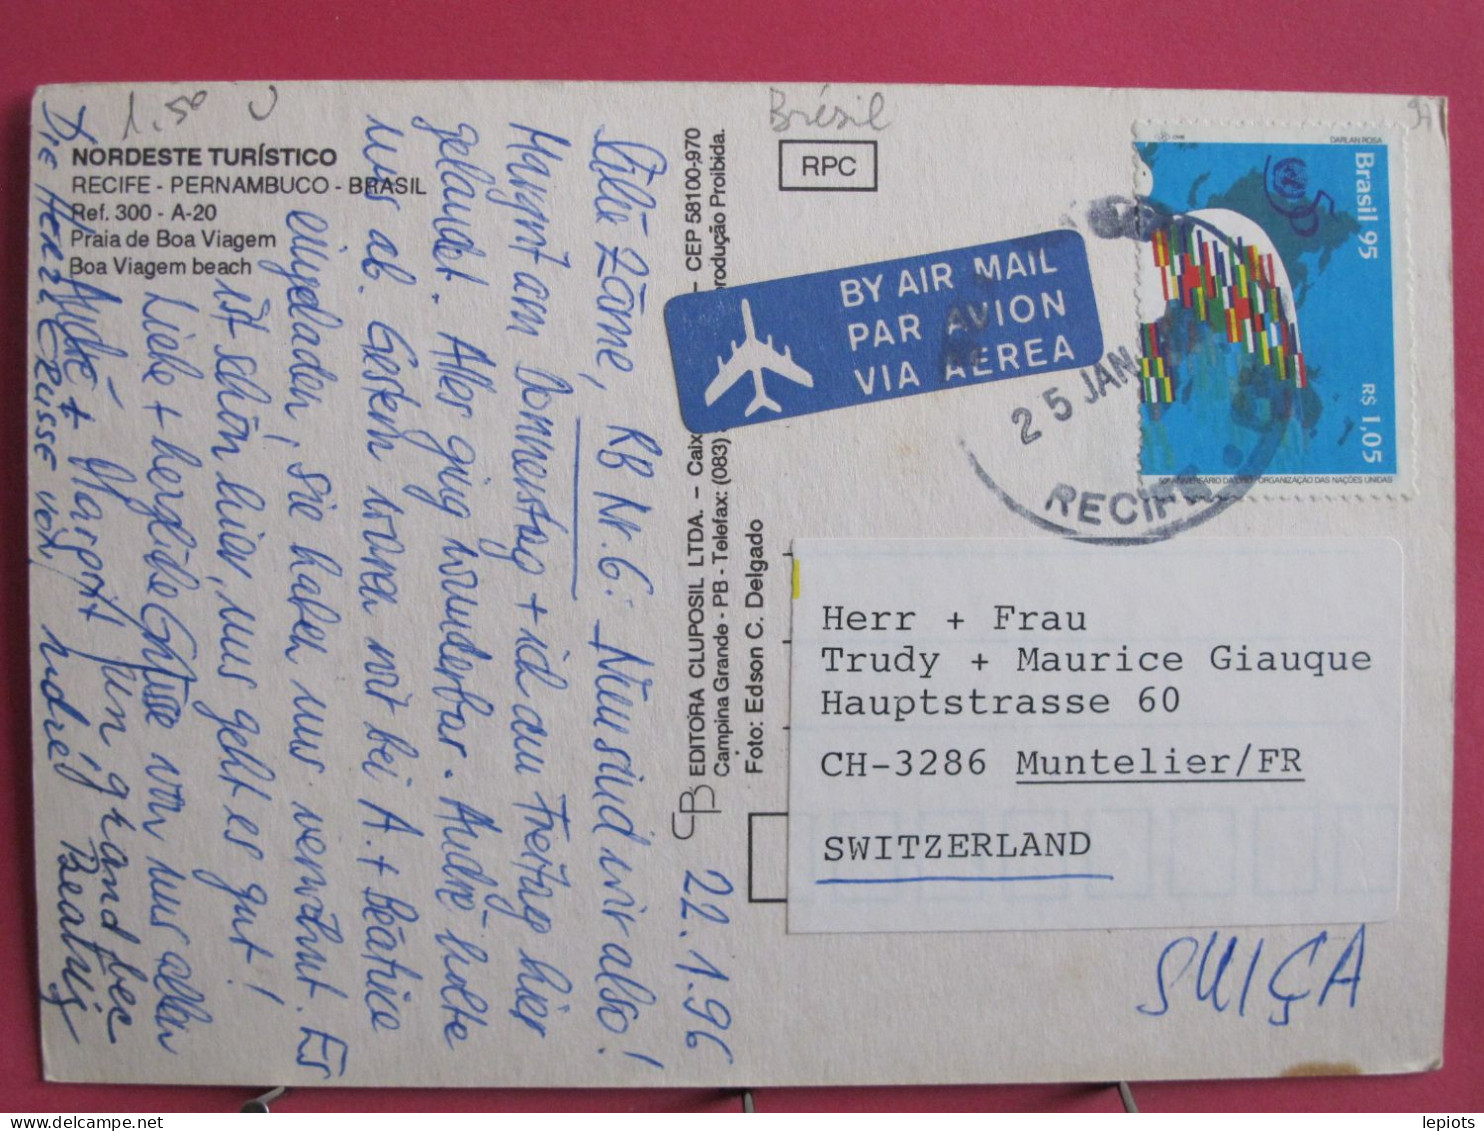 1.50
Brésil
NORDESTE TURÍSTICO
RECIFE - PERNAMBUCO - BRASIL
Ref. 300 - A-20
Praia de Boa Viagem
Boa Viagem beach
22.1.96
RB Nr. 6: Nun sind wir also!
Margrit am Donnerstag + ich am Freitag hier
gelandet. Alles ging wunderbar. André holte
uns ab. Gestern waren wir bei A. + Béatrice
eingeladen, sie haben uns verwöhnt. Es
ist schön hier, uns geht es gut!
Liebe + herzliche Grüsse von uns allen
André + Margrit
Un grand bec
Beatrix
EDITORA CLUPOSIL LTDA. – Caix – CEP 58100-970
Campina Grande - PB - Telefax: (083) rodução Proibida.
Foto: Edson C. Delgado
RPC
BY AIR MAIL
PAR AVION
VIA AEREA
25 JAN
RECIFE
DARLAN ROSA
Brasil 95
R$ 1,05
50º ANIVERSÁRIO DA ORGANIZAÇÃO DAS NAÇÕES UNIDAS
Herr + Frau
Trudy + Maurice Giauque
Hauptstrasse 60
CH-3286 Muntelier/FR
SWITZERLAND
SUIÇA
lepiots